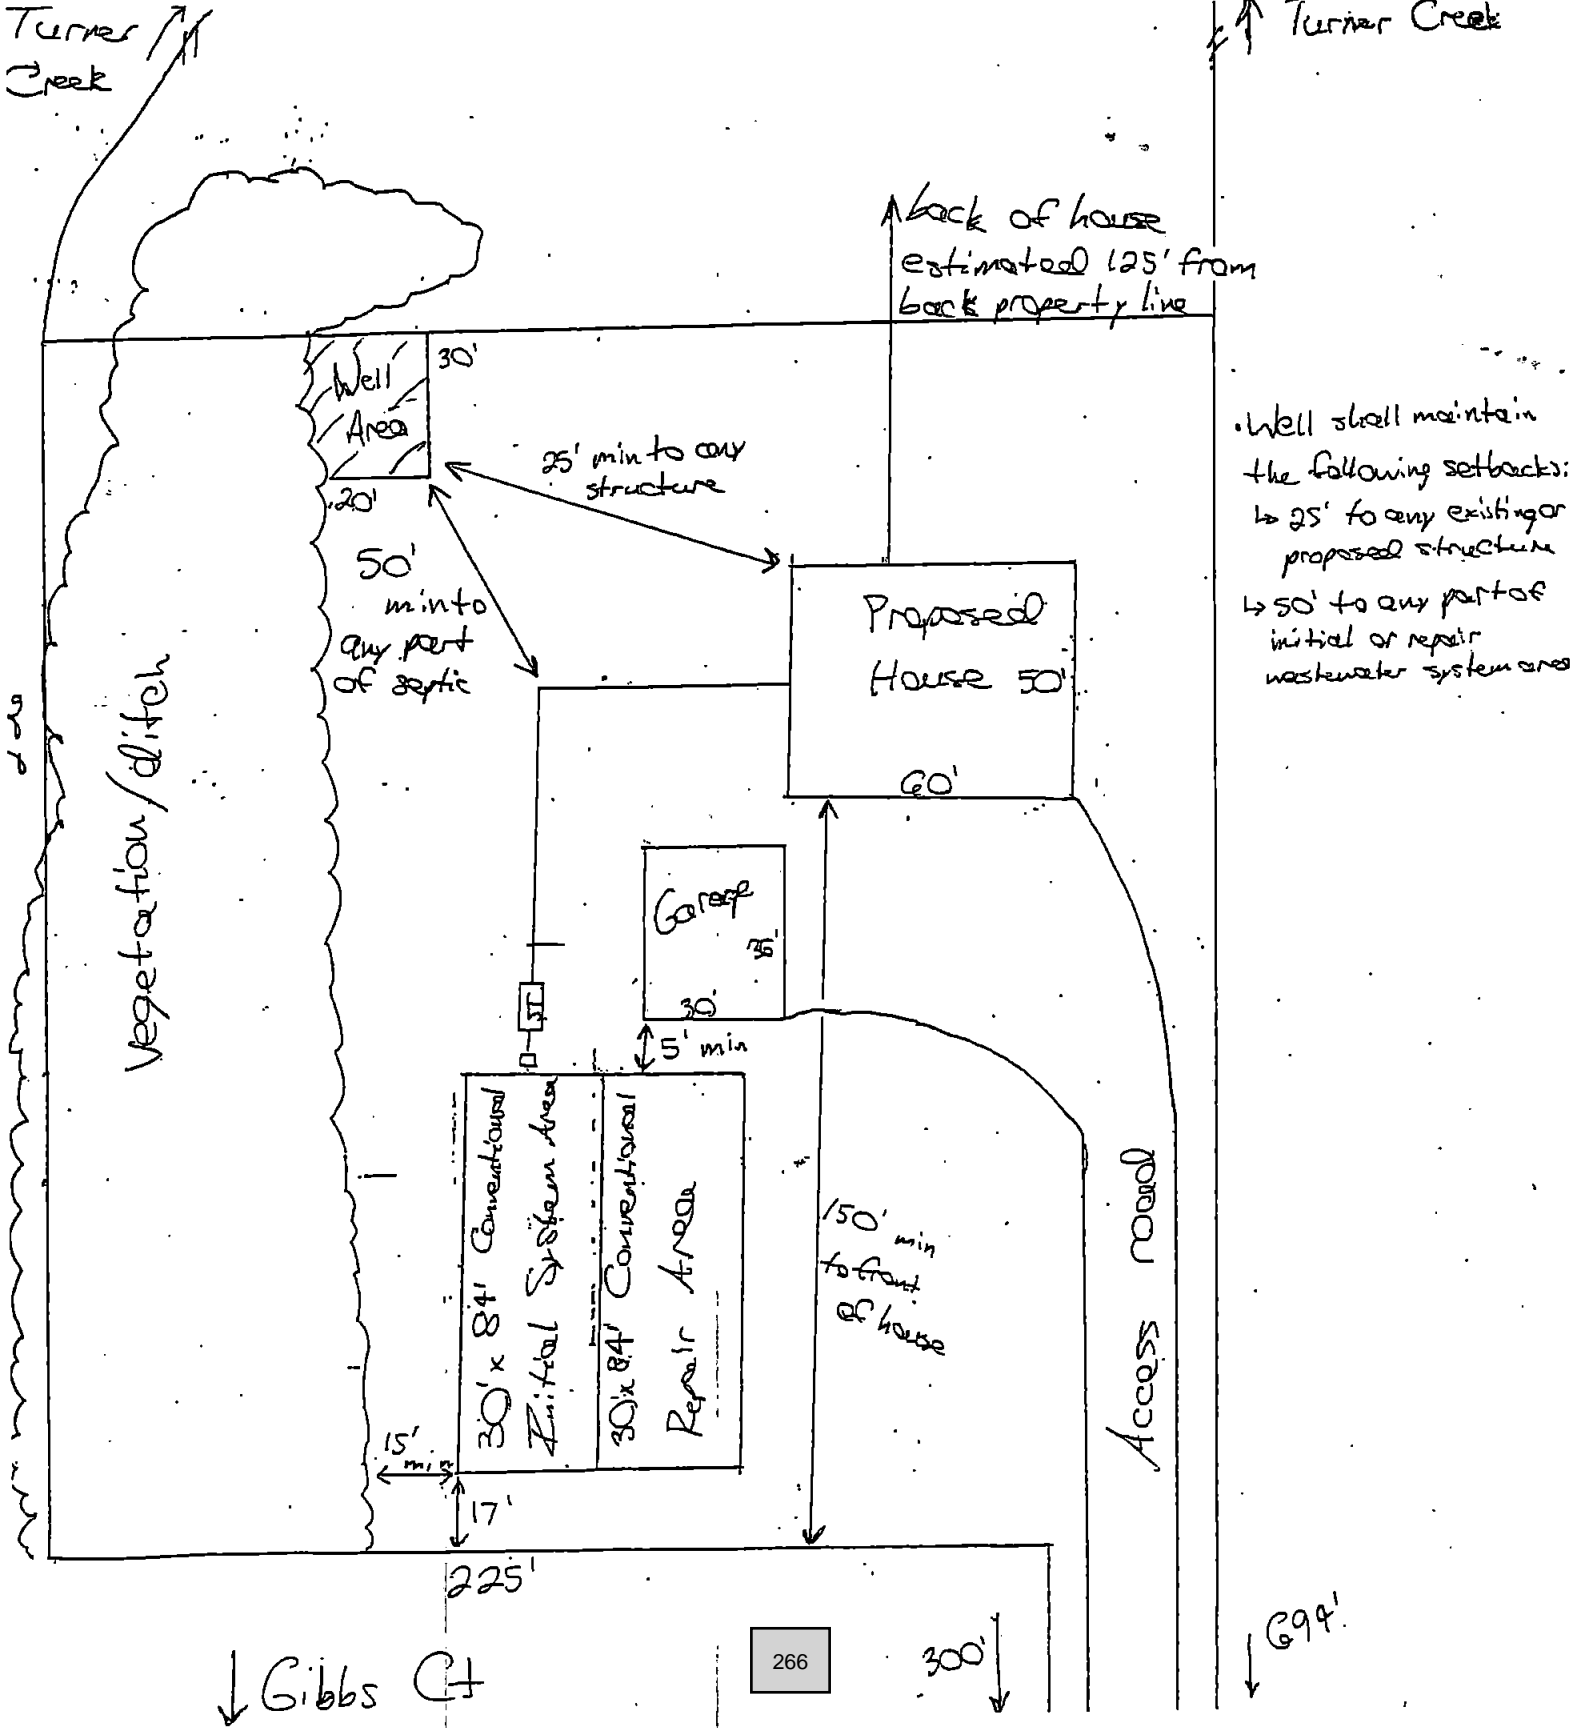 Turner
Creek
Turner Creek
back of house
estimated 125' from
back property line
Well
Area
30'
20'
25' min to any
structure
50'
min to
any part
of septic
• Well shall maintain
the following setbacks:
↳ 25' to any existing or
proposed structure
↳ 50' to any part of
initial or repair
wastewater system area
Proposed
House 50'
60'
Vegetation/ditch
Garage
30'
ST
5' min
30' x 84' Conventional
Initial System Area
30' x 84' Conventional
Repair Area
150' min
to front
of house
Access road
15'
min
17'
225'
Gibbs Ct
266
300'
694'